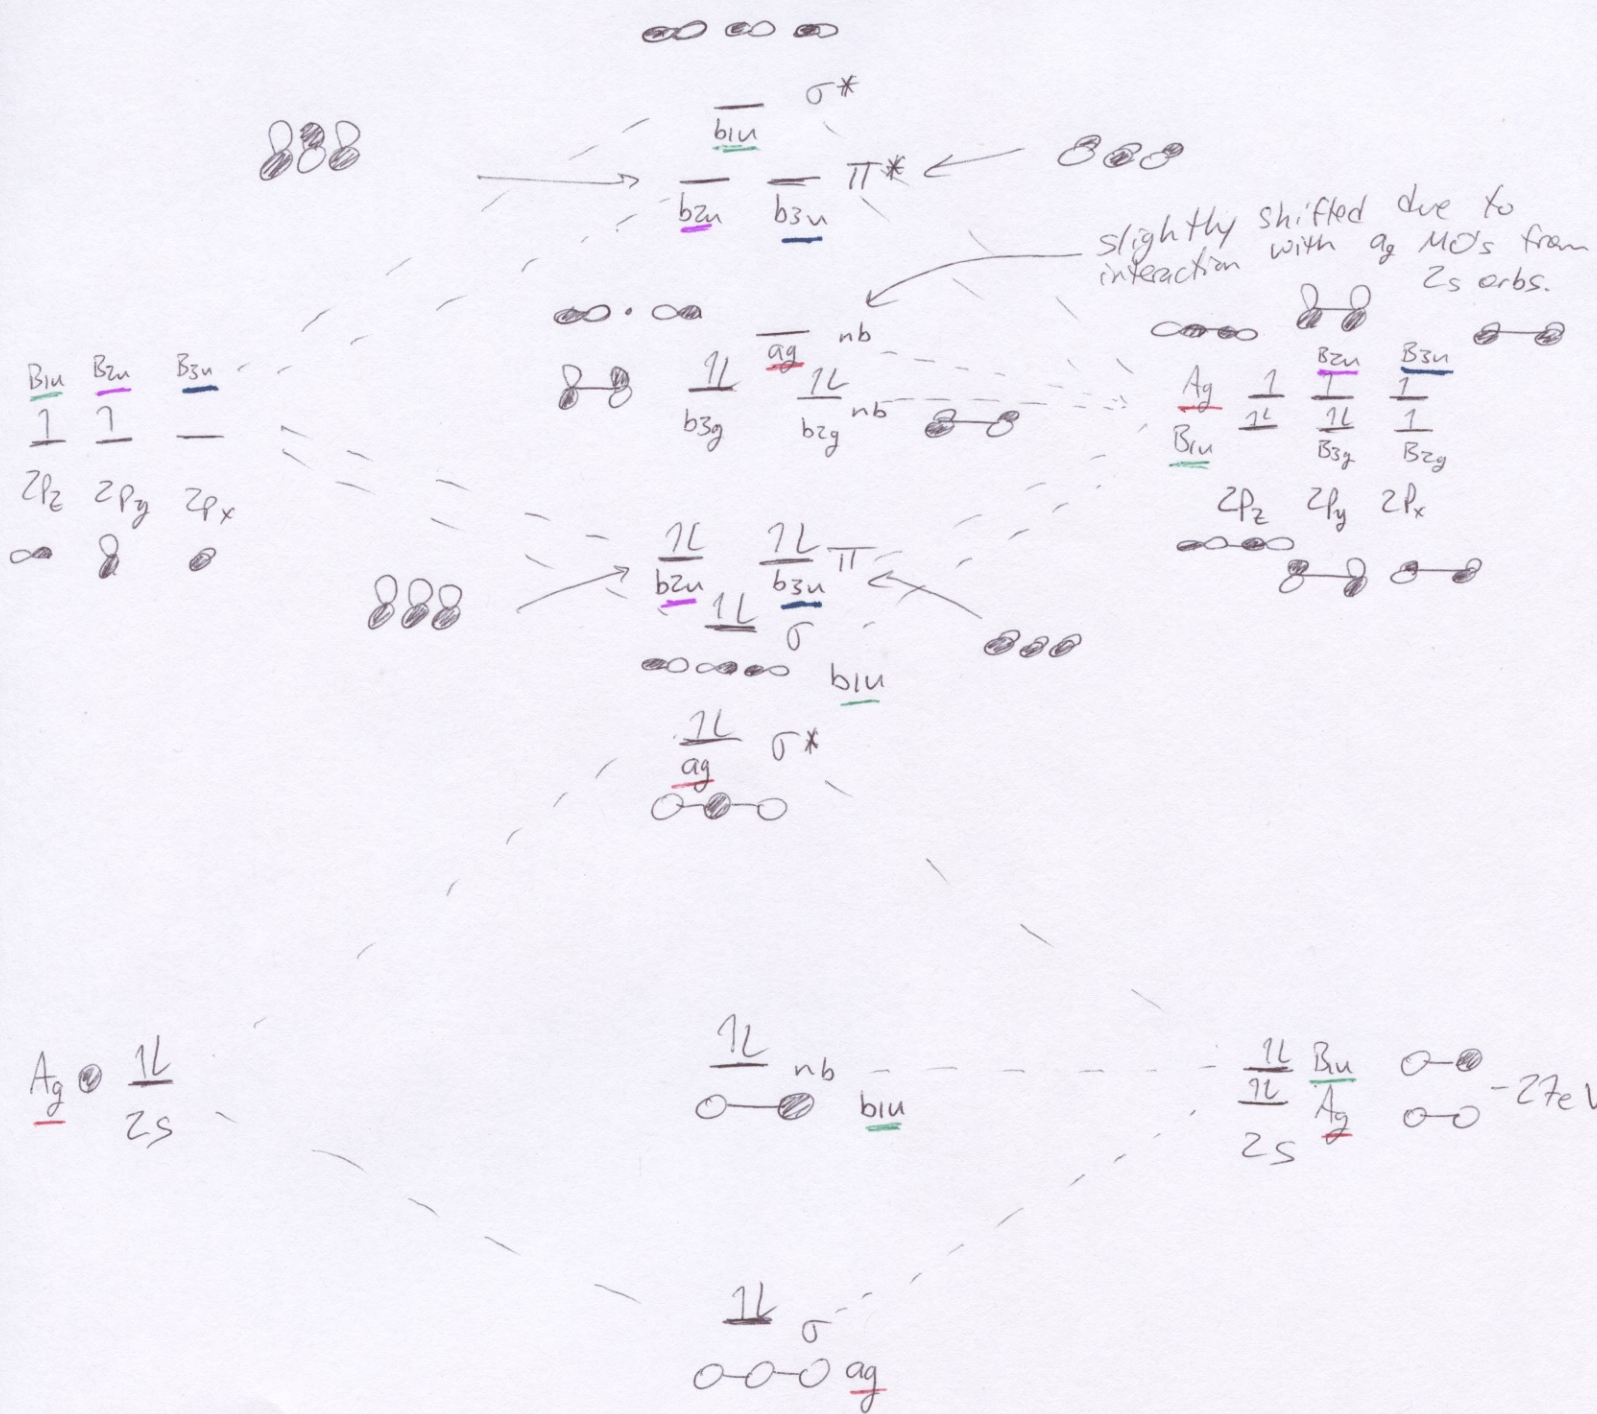 σ*
b1u
π*
b2u b3u
slightly shifted due to
interaction with ag MO's from
2s orbs.
nb
ag
b3g b2g nb
B1u B2u B3u
2Pz 2Py 2Px
Ag B2u B3u
B1u B3g B2g
2Pz 2Py 2Px
π
b2u b3u
σ
b1u
σ*
ag
Ag 2s
nb
b1u
B1u
Ag -27eV
2s
σ
ag